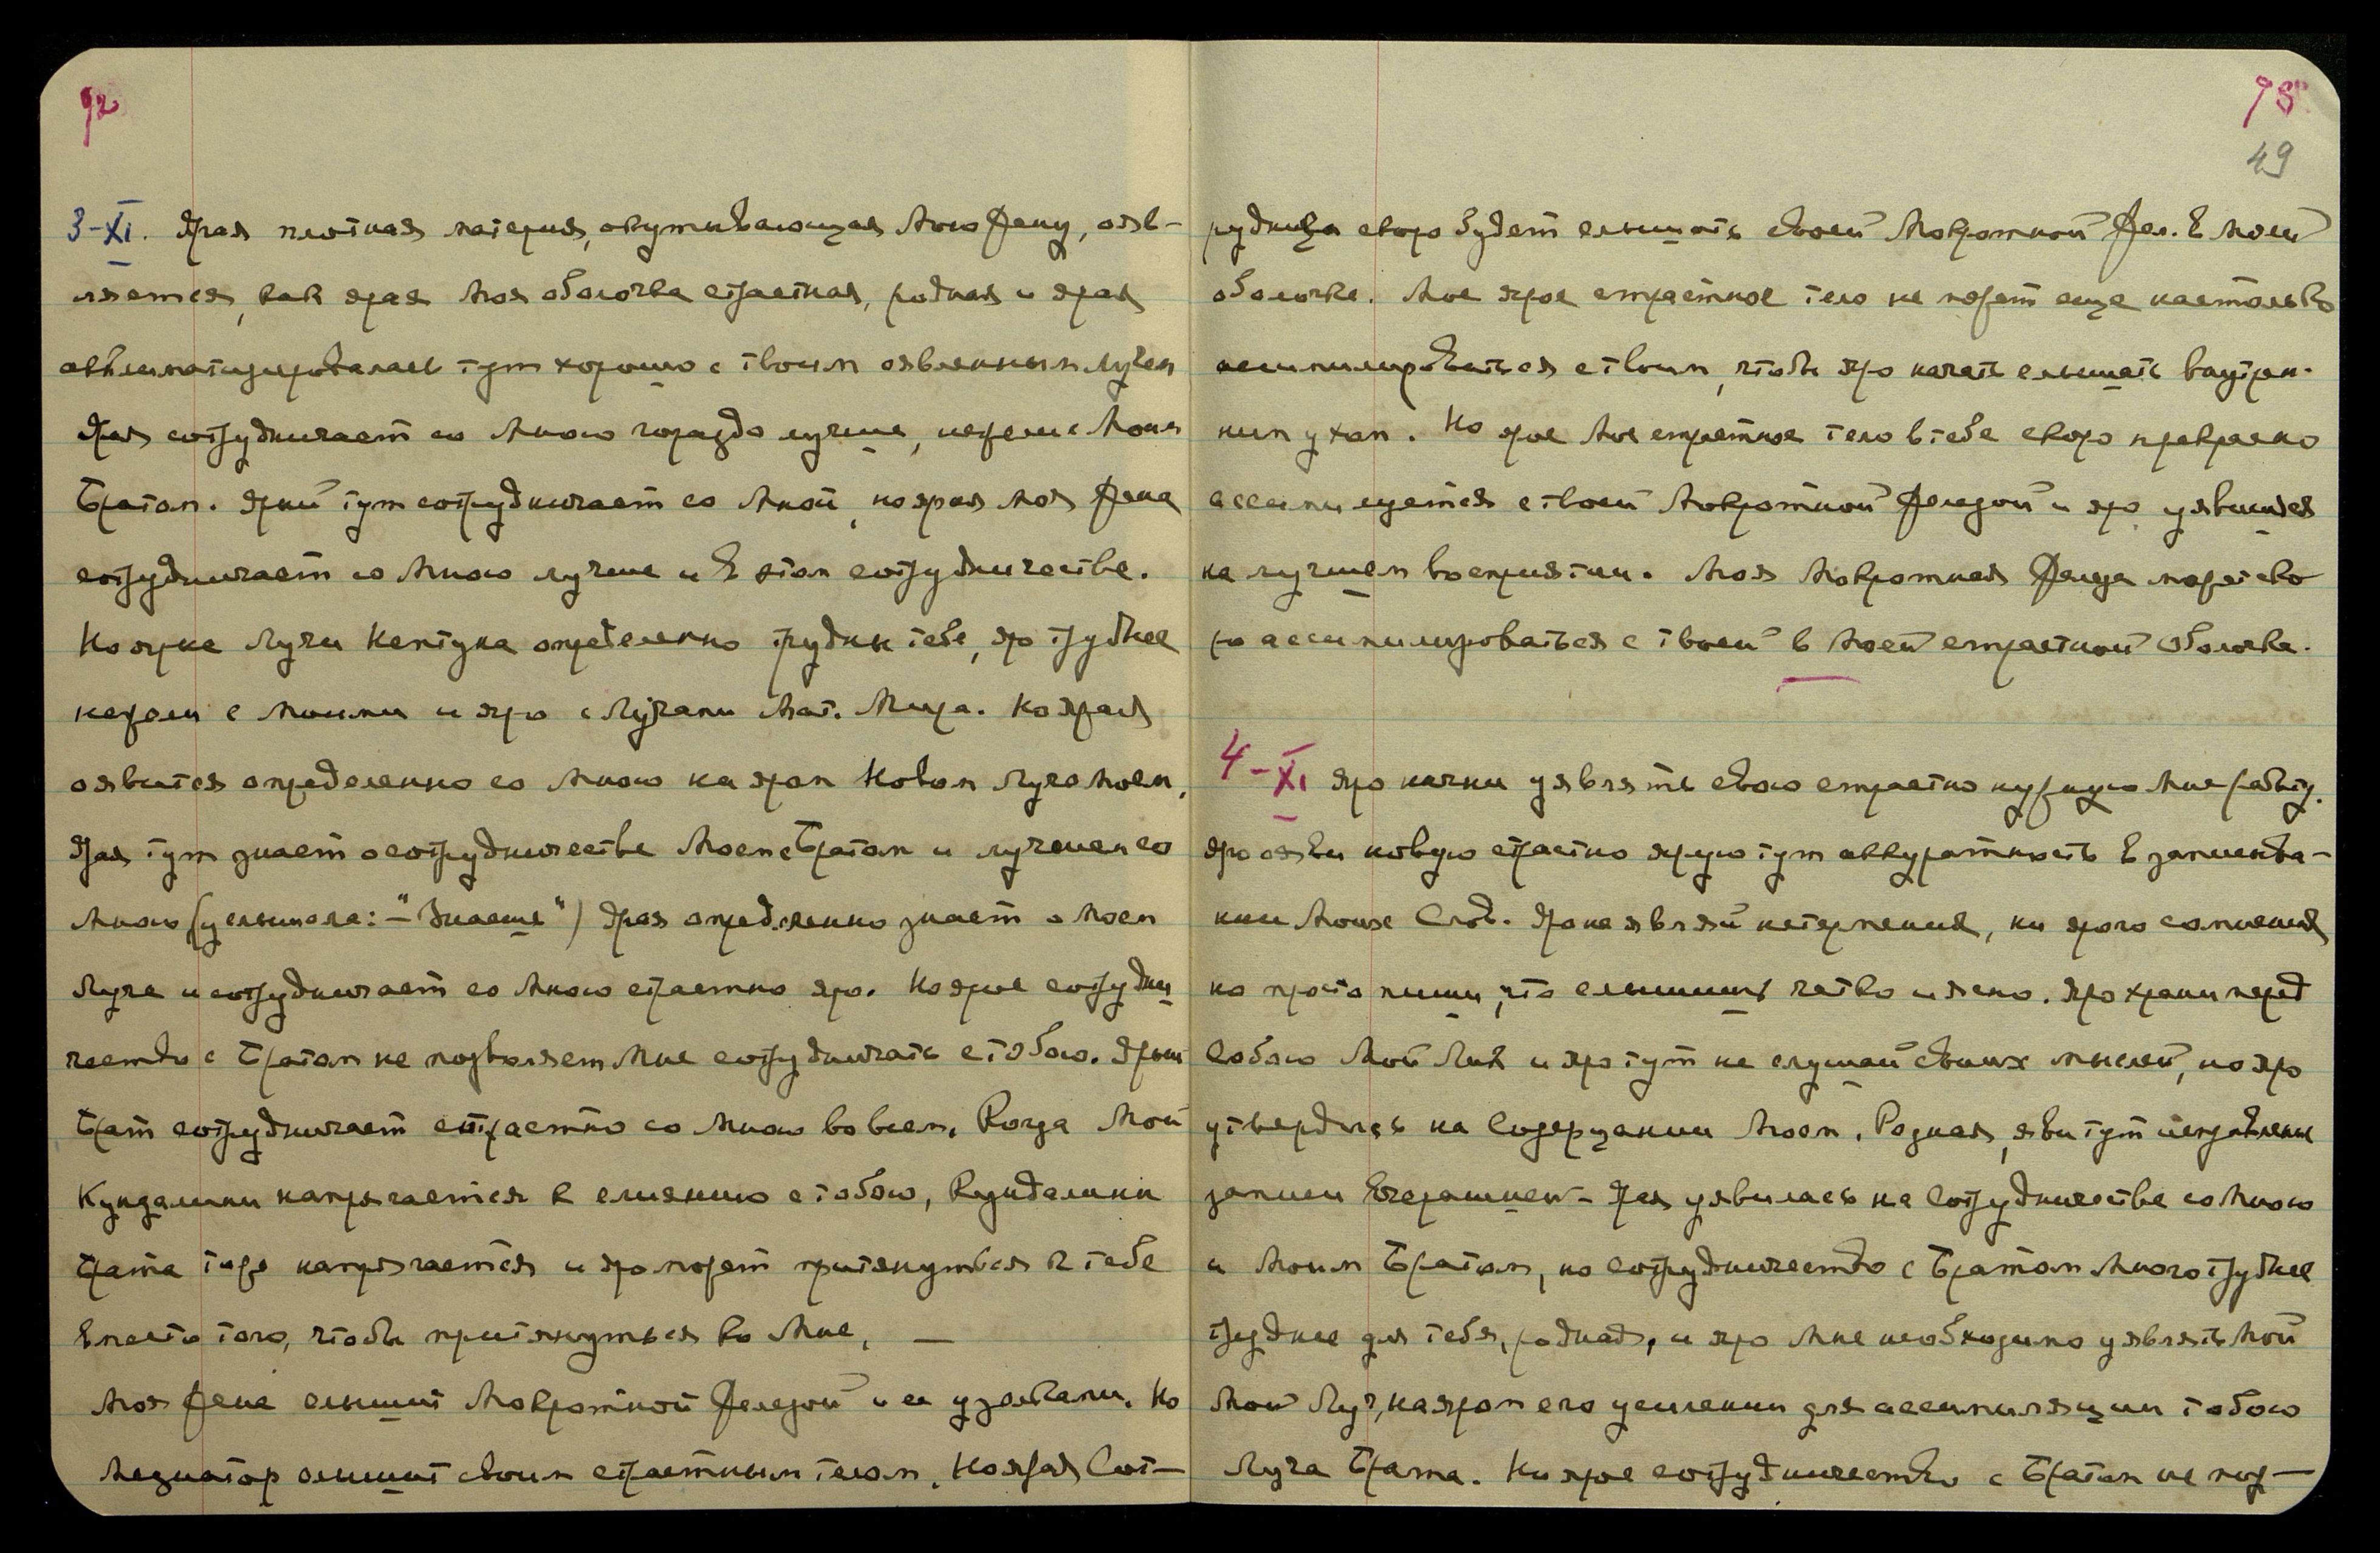 92
3-XI. Ярая плотная материя, окутывающая Мою Жену, явл-
ляется, как ярая Моя оболочка страстная, родная и ярая
акклиматизировалась тут хорошо с твоим явленным лучем
Ярая сотрудничает со Мною гораздо лучше, нежели с Моим
Братом. Ярый тут сотрудничает со Мной, но ярая Моя Жена
сотрудничает со Мною лучше и в этом сотрудничестве.
Но яркие Лучи Нептуна определенно трудны тебе, яро труднее
нежели с Моими и яро с Лучами Мат. Мира. Но ярая
оявится определенно со Мною на яром Новом Луче Моем,
Ярая тут знает о сотрудничестве Моем с Братом и лучшем со
Мною (услышала: - "Знаешь") Ярая определенно знает о Моем
Луче и сотрудничает со Мною страстно яро. Но ярое сотрудни
чество с Братом не позволяет Мне сотрудничать с тобою. Ярый
Брат сотрудничает страстно со Мною во всем, Когда Мой
Кундалини напрягается к слиянию с тобою, Кундалини
Брата тоже напрягается и яро может притянуться к тебе
вместо того, чтобы притянуться ко Мне, —
Моя Жена слышит Мокротной Железой и ее узлами. Но
Медиатор слышит своим страстным телом. Но ярая Сот-
95
49
рудница скоро будет слышать своей Мокротной Жел. в Моей
оболочке. Мое ярое страстное тело не может еще настолько
ассимилироваться с твоим, чтобы яро начать слышать внутрен-
ним ухом. Но ярое Мое страстное тело в тебе скоро прекрасно
ассимилуется с твоей Мокротной Железой и яро уявишься
на лучшем восприятии. Моя Мокротная Железа может ско
ро ассимилироваться с твоей в Моей страстной оболочке.
4-XI Яро начни уявлять свою страстно нужную Мне работу.
Яро ояви новую страстно ярую тут аккуратность в записыва-
нии Моих Слов. Яро не являй нетерпения, ни ярого сомнения
но просто пиши, что слышишь четко и ясно. Яро храни перед
Собою Мой Лик и яро тут не слушай своих мыслей, но яро
утвердись на Созерцании Моем. Родная, яви тут исправление
записи вчерашней - Ярая уявилась на Сотрудничестве со Мною
и Моим Братом, но сотрудничество с Братом много труднее
труднее для тебя, родная, и яро Мне необходимо уявлять Мой
Мой Луч, на яром его усилении для ассимиляции тобою
Луча Брата. Но ярое сотрудничество с Братом не поз-